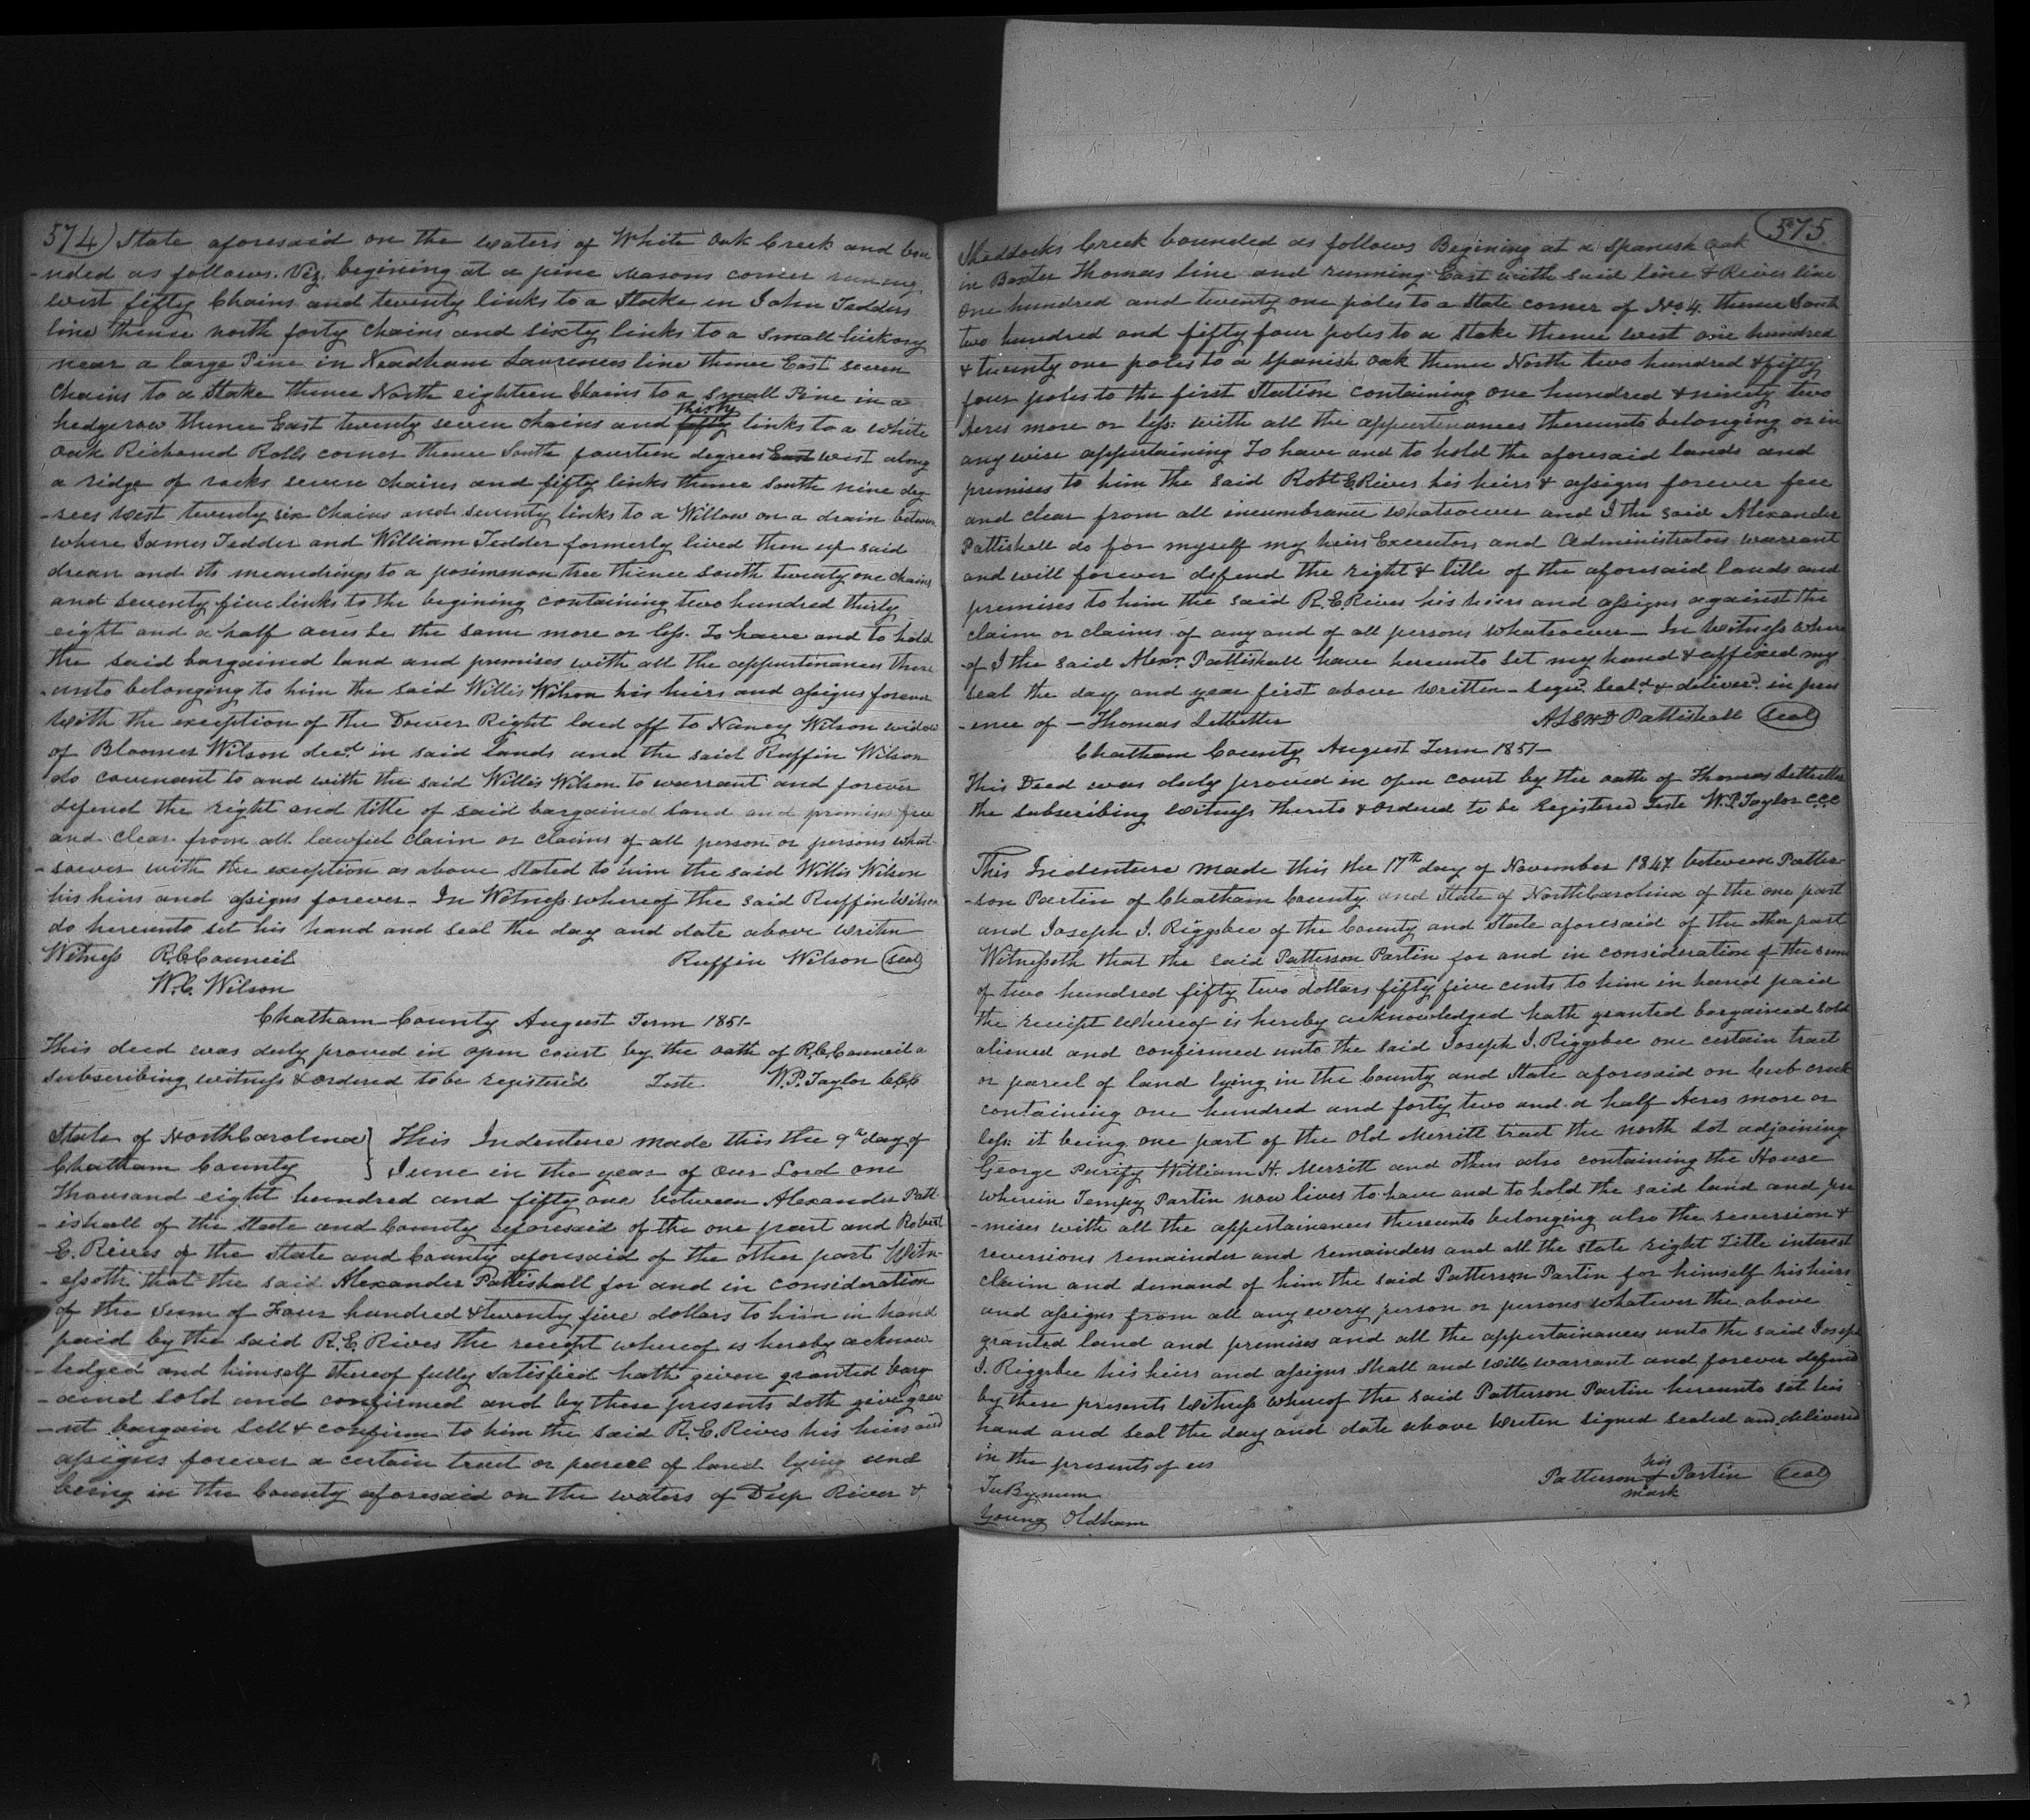 574) State aforesaid on the waters of White Oak Creek and bou
-nded as follows. Viz. begining at a pine Masons corner running
west fifty Chains and twenty links to a Stake in John Tedders
line thence north forty chains and sixty links to a small hickory
near a large Pine in Neadham Lawrences line thence East seven
chains to a Stake thence North eighteen Chains to a small Pine in a
hedgerow thence East twenty seven chains and fifty thirty links to a white
oak Richard Rolls corner thence South fourteen degrees East west along
a ridge of rocks seven chains and fifty links thence South nine deg
-rees West twenty six chains and seventy links to a Willow on a drain between
where James Tedder and William Tedder formerly lived then up said
drean and its meandrings to a posimmon tree thence south twenty one chains
and seventy five links to the begining containing two hundred thirty
eight and a half acres be the same more or less. To have and to hold
the said bargained land and premises with all the appurtenances there
-unto belonging to him the said Willis Wilson his heirs and assigns forever
with the exception of the Dower Right laid off to Nancy Wilson widow
of Bloomer Wilson decd. in said lands and the said Ruffin Wilson
do covenant to and with the said Willis Wilson to warrant and forever
defend the right and title of said bargained land and premises free
and clear from all lawful claim or claims of all person or persons what
-soever with the exception as above stated to him the said Willis Wilson
his heirs and assigns forever - In Witness whereof the said Ruffin Wilson
do hereunto set his hand and seal the day and date above writen
Witness R.C. Council Ruffin Wilson (seal)
W.C. Wilson
Chatham County August Term 1851-
This deed was duly proved in open court by the oath of R.C. Council a
subscribing witness & ordered to be registered Teste W.P. Taylor CCC
State of North Carolina } This Indenture made this the 9th day of
Chatham County } June in the year of our Lord one
Thousand eight hundred and fifty one between Alexander Patt-
-ishall of the State and County aforesaid of the one part and Robert
E. Rives of the State and County aforesaid of the other part Witn-
-esseth that the said Alexander Pattishall for and in consideration
of the sum of Four hundred & twenty five dollars to him in hand
paid by the said R.E. Rives the receipt whereof is hereby acknow-
-ledged and himself thereof fully satisfied hath given granted barg
-aind sold and confirmed and by these presents doth give gran
-nt bargain sell & confirm to him the said R.E. Rives his heirs and
assigns forever a certain tract or parcel of land lying and
being in the County aforesaid on the waters of Deep River &
575
Shaddocks Creek bounded as follows Begining at a Spanish Oak
in Baxter Thomas line and running East with said line & Rives line
one hundred and twenty one poles to a State corner of No. 4. thence South
two hundred and fifty four poles to a stake thence west one hundred
& twenty one poles to a spanish oak thence North two hundred & fifty
four poles to the first Station containing one hundred & ninety two
Acres more or less: with all the appurtenances thereunto belonging or in
any wise appertaining To have and to hold the aforesaid lands and
premises to him the said Robt. E. Rives his heirs & assigns forever free
and clear from all incumbrance whatsoever and I the said Alexander
Pattishall do for myself my heirs Executors and Administrators warrant
and will forever defend the right & title of the aforesaid lands and
premises to him the said R.E. Rives his heirs and assigns against the
claim or claims of any and of all persons whatsoever - In Witness where
-of I the said Alexr. Pattishall have hereunto set my hand & affixed my
seal the day and year first above written - Signd. Seald. & deliverd. in pres
-ence of - Thomas Letbetter Alexd Pattishall (seal)
Chatham County August Term 1851-
This Deed was duly proved in open court by the oath of Thomas Letbetter
the subscribing witness thereto & ordered to be Registered Teste W.P. Taylor CCC
This Indenture made this the 17th day of November 1847 between Patter-
-son Partin of Chatham County and State of North Carolina of the one part
and Joseph J. Riggsbee of the County and State aforesaid of the other part
Witnesseth that the said Patterson Partin for and in consideration of the sum
of two hundred fifty two dollars fifty five cents to him in hand paid
the receipt whereof is hereby acknowledged hath granted bargained sold
aliened and confirmed unto the said Joseph J. Riggsbee one certain tract
or parcel of land lying in the County and State aforesaid on Cub creek
containing one hundred and forty two and a half Acres more or
less it being one part of the Old Merritt tract the north Lot adjoining
George Purify William H. Merritt and others also containing the House
wherein Tempy Partin now lives to have and to hold the said land and pre
-mises with all the appertainences thereunto belonging also the reversion &
reversions remainder and remainders and all the state right Title interest
claim and demand of him the said Patterson Partin for himself his heirs
and assigns from all any every person or persons whatever the above
granted land and premises and all the appertainances unto the said Joseph
J. Riggsbee his heirs and assigns shall and will warrant and forever defend
by these presents Witness whereof the said Patterson Partin hereunto set his
hand and seal the day and date above writen signed sealed and delivered
in the presents of us
Patterson his mark Partin (seal)
Bynum
Young Oldham